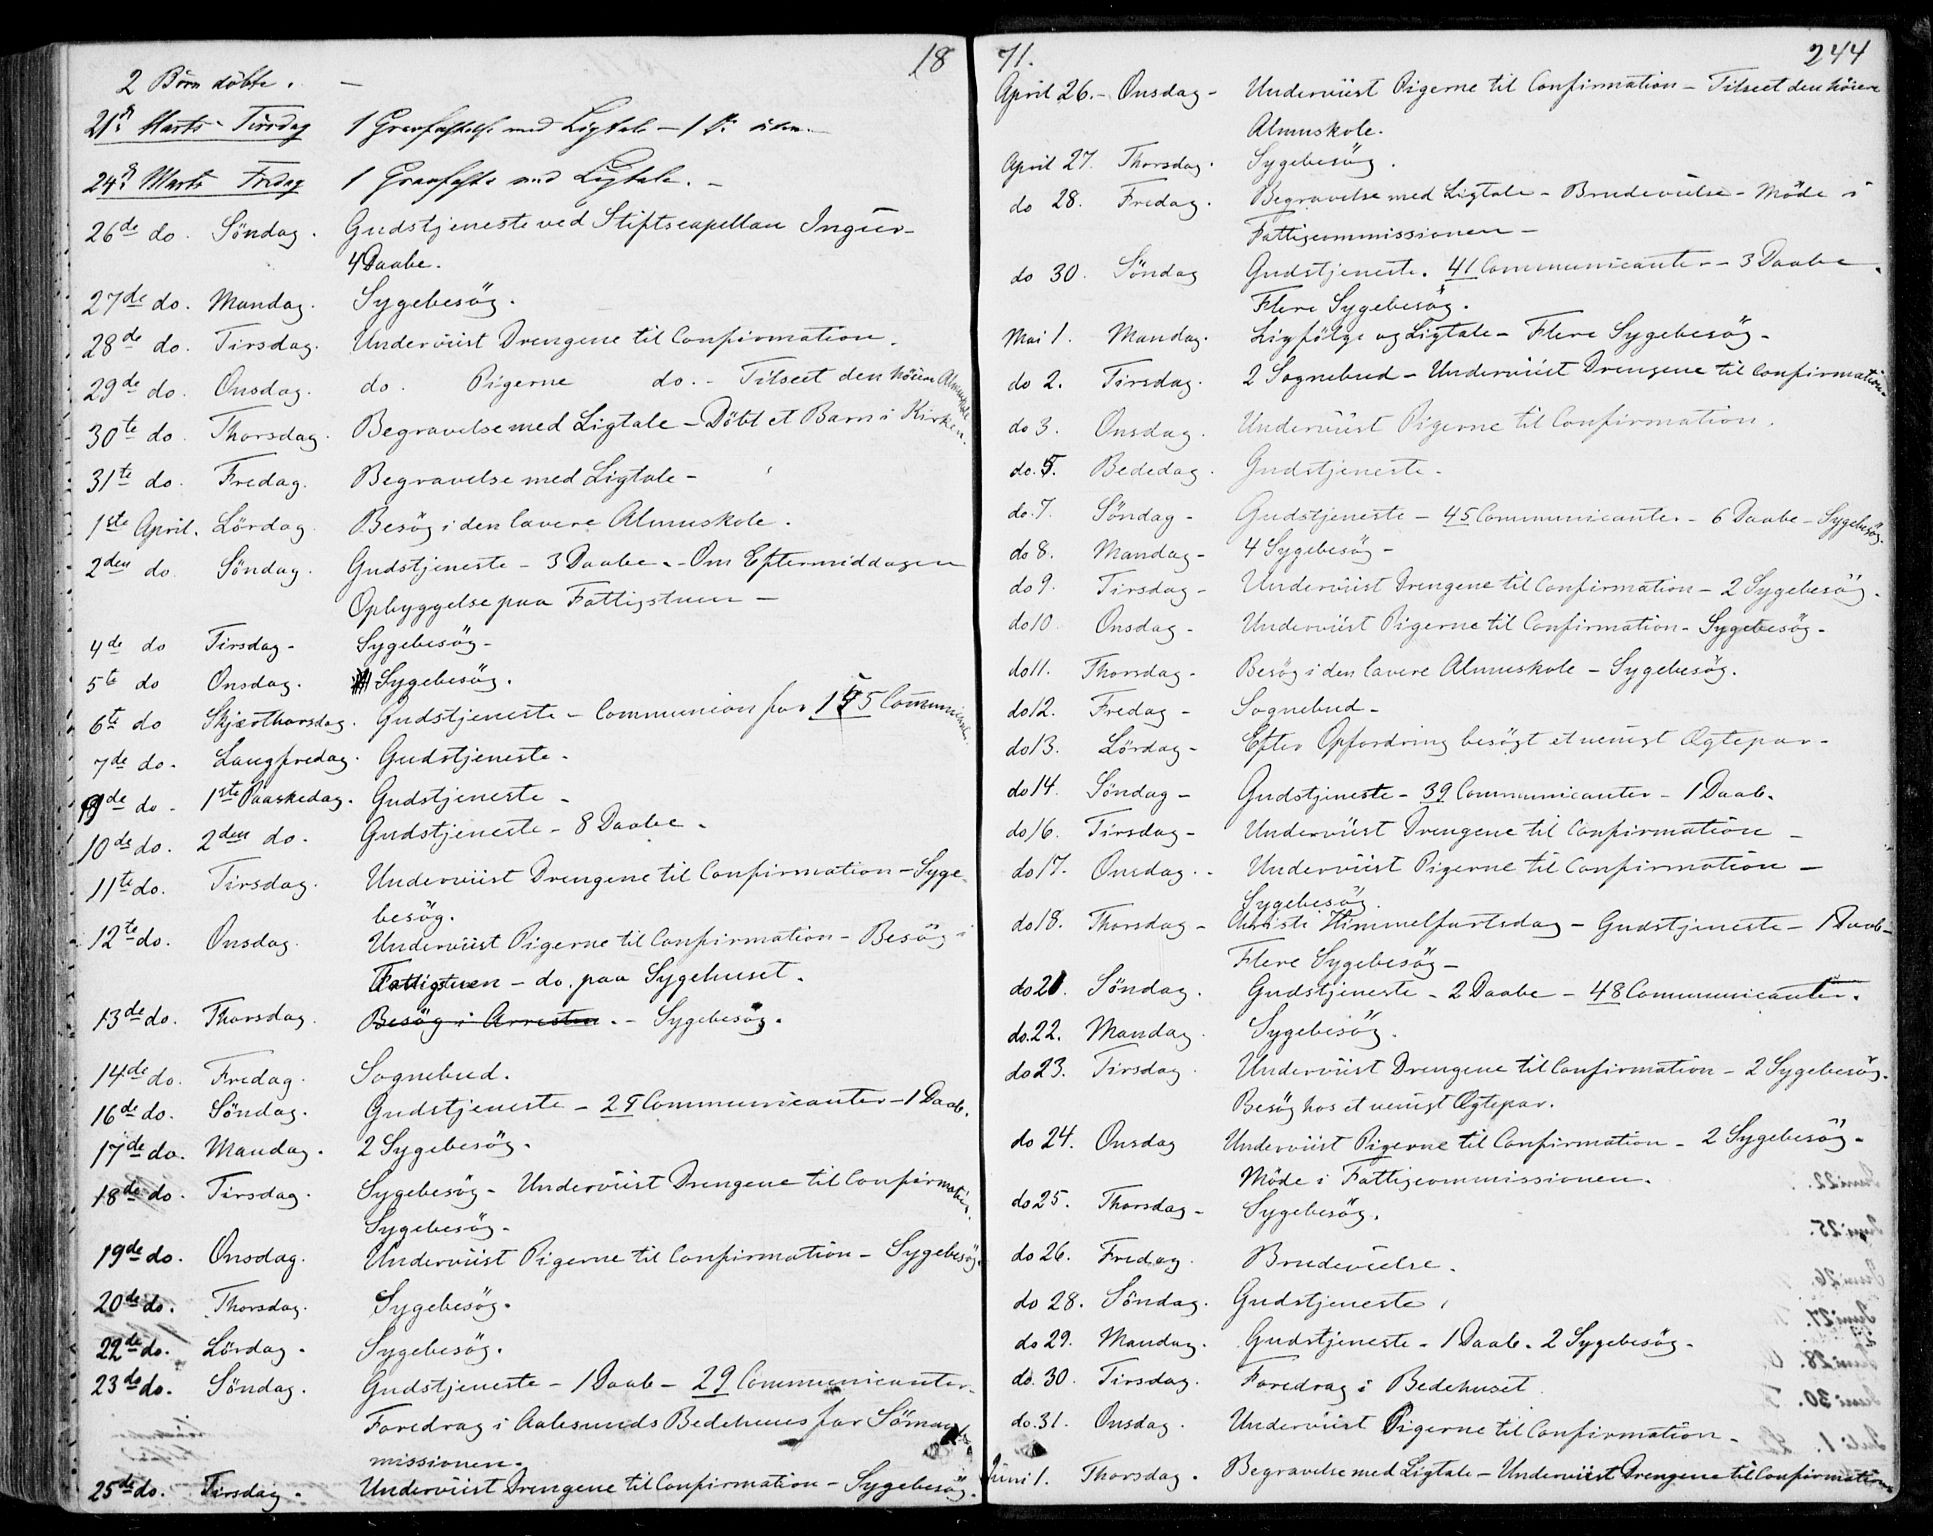 18
2 Börn döbte. -
21de Marts - Tirsdag 1 Gravfæstelse med Ligtale - 1 do uden -
24de Marts Fredag 1 Gravfæstelse med Ligtale. -
26de do. Söndag. Gudstjeneste ved Stiftscapellan Ingier -
4 Daabe.
27de do. Mandag. Sygebesög.
28de do. Tirsdag. Underviist Drengene til Confirmation.
29de do. Onsdag. do. Pigerne do. - Tilseet den höiere Almuskole
30te do. Thorsdag. Begravelse med Ligtale - Döbt et Barn i Kirken.
31te do. Fredag. Begravelse med Ligtale -
1ste April. Lördag. Besög i den lavere Almuskole.
2den do. Söndag. Gudstjeneste - 3 Daabe. - Om Eftermiddagen
Opbyggelse paa Fattigstuen -
4de do Tirsdag - Sygebesög -
5te do Onsdag. Sygebesög.
6te do Skjærthorsdag. Gudstjeneste - Communion for Communicanter.
7de do. Langfredag. Gudstjeneste.
9de do. 1ste Paaskedag. Gudstjeneste -
10de do. 2den do. Gudstjeneste - 8 Daabe.
11te do. Tirsdag. Underviist Drengene til Confirmation - Syge-
besög.
12te do. Onsdag. Underviist Pigerne til Confirmation - Besög i
Fattigstuen - do. paa Sygehuset.
13de do. Thorsdag. Besög i Arresten. - Sygebesög.
14de do. Fredag. Sognebud.
16de do. Söndag. Gudstjeneste - Communicanter - 1 Daab.
17de do. Mandag. 2 Sygebesög.
18de do. Tirsdag. Sygebesög - Underviist Drengene til Confirmation.
Sygebesög -
19de do. Onsdag. Underviist Pigerne til Confirmation - Sygebesög.
20de do. Thorsdag. Sygebesög.
22de do. Lördag. Sygebesög.
23de do. Söndag. Gudstjeneste - 1 Daab - 29 Communicanter -
Foredrag i Aalesunds Bedehuus for Sömands
missionen -
25de do. Tirsdag. Underviist Drengene til Confirmation - Sygebesög.
71. 244
April 26. - Onsdag - Underviist Pigerne til Confirmation - Tilseet den höiere
Almuskole.
April 27. Thorsdag. Sygebesög.
do 28. Fredag. Begravelse med Ligtale - Brudevielse - Möde i
Fattigcommissionen -
do 30. Söndag Gudstjeneste. 41 Communicanter - 3 Daabe.
Flere Sygebesög.
Mai 1. Mandag. Ligfölge og Ligtale - Flere Sygebesög -
do 2. Tirsdag. 2 Sognebud - Underviist Drengene til Confirmation.
do 3. Onsdag. Underviist Pigerne til Confirmation.
do. 5. Bededag. Gudstjeneste.
do. 7. Söndag - Gudstjeneste - 45 Communicanter. - 6 Daabe - Sygebesög.
do 8. Mandag - 4 Sygebesög -
do 9. Tirsdag - Underviist Drengene til Confirmation - 2 Sygebesög.
do 10. Onsdag - Underviist Pigerne til Confirmation - Sygebesög -
do 11. Thorsdag - Besög i den lavere Almuskole - Sygebesög.
do 12. Fredag - Sognebud -
do 13. Lördag - Efter Opfordring besögt et uenigt Ægtepar -
do 14. Söndag - Gudstjeneste - 39 Communicanter - 1 Daab.
do 16. Tirsdag - Underviist Drengene til Confirmation -
do 17. Onsdag. - Underviist Pigerne til Confirmation -
Sygebesög.
do 18. Thorsdag - Christi Himmelfartsdag - Gudstjeneste - 1 Daab -
Flere Sygebesög -
do 21. Söndag. Gudstjeneste - 2 Daabe - 48 Communicanter.
do. 22. Mandag. Sygebesög.
do 23. Tirsdag. Underviist Drengene til Confirmation - 2 Sygebesög.
Besög hos et uenigt Ægtepar.
do 24. Onsdag Underviist Pigerne til Confirmation - 2 Sygebesög -
Möde i Fattigcommissionen.
do 25. Thorsdag - Sygebesög.
do 26. Fredag. Brudevielse.
do 28. Söndag. Gudstjeneste.
do 29. Mandag. Gudstjeneste - 1 Daab. 2 Sygebesög -
do. 30. Tirsdag. Foredrag i Bedehuset.
do. 31. Onsdag. Underviist Pigerne til Confirmation -
Juni 1. Thorsdag. Begravelse med Ligtale - Underviist Drengene til Confirmation